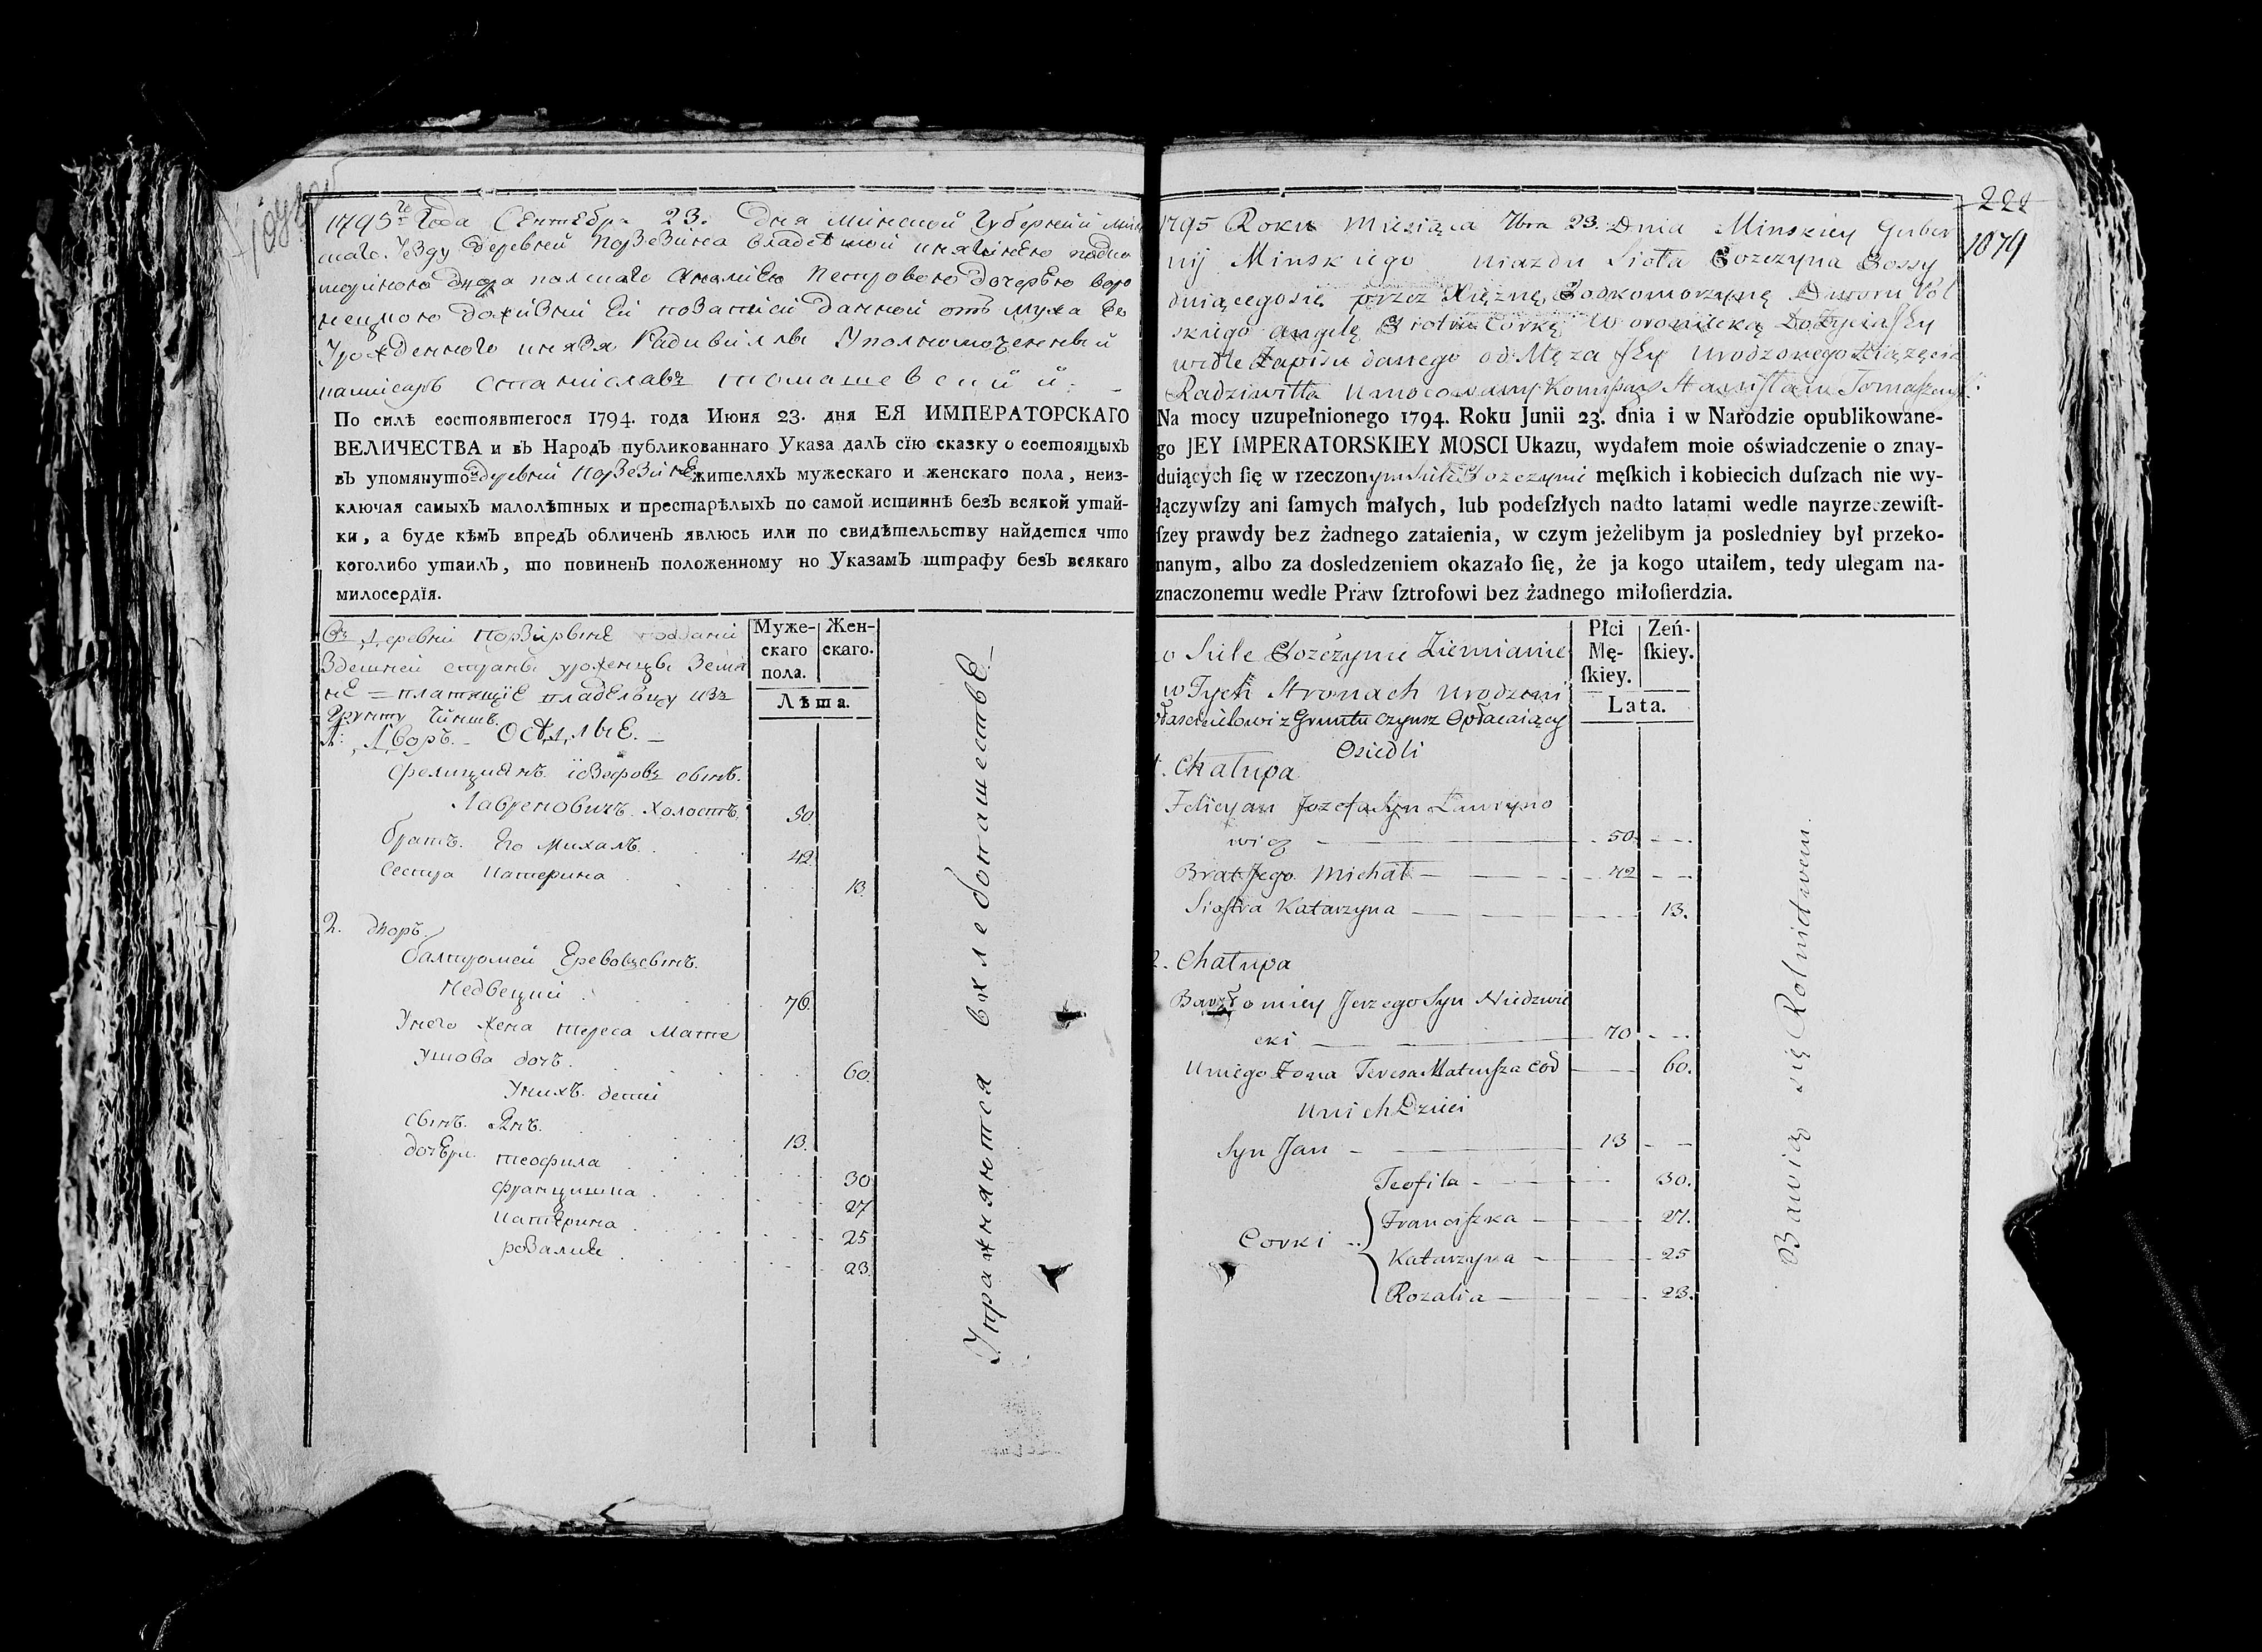 1795го Года Сентебря 23. Дня минской Губернии мин
скаго уезду деревни
Урожденного князя Радивилла Уполномоченный
писарь Станиславъ томашевский.
По силѣ состоявшегося 1794. года Июня 23. дня ЕЯ ИМПЕРАТОРСКАГО
ВЕЛИЧЕСТВА и въ НародЪ публикованнаго Указа далЪ сїю сказку о состоящыхЪ
вЪ упомянутой деревни жителяхЪ мужескаго и женскаго пола, неиз-
ключая самыхЪ малолѣтныхЪ и престарѣлыхЪ по самой истиннѣ безЪ всякой утай-
ки, а буде кѣмЪ впредЪ обличенЪ явлюсь или по свидѣтельству найдется что
коголибо утаилЪ, то повиненЪ положенному но УказамЪ штрафу безЪ всякаго
милосердїя.
Муже-
скаго
пола.
Жен-
скаго.
Лѣта.
здешней страны уроженцы Земя
не = платящїе владельцу изъ
Грунту Чиншъ.
1: Дворъ. – Оседлые. –
Фелициянъ. їозефовъ сынъ.
Лавреновичъ. холостъ. 50.
братъ. Его Михалъ. 42.
Сестра Катерина 13.
2. дворъ.
балтромей сынъ.
Недвецкий 70.
У него жена тереса Мате
ушова дочъ. 60.
У нихъ. дети
сынъ. Янъ. 13.
дочери. теофила 30
францишка 27
Катерина 25
розалия 23.
Упражняются в хлебопашестве. –
222
1079
1795 Roku Miesiąca 7bra 23. Dnia Minskiey Guber
nij Minskiego uiazdu Sioła
duiącegosię przez Xiężnę Podkomorzynę Dworu Pol
skiego Angelę Piotra Corkę Woroniecką Dożycia Jey
wedle Zapisu danego od Męza Jey urodzonego Xiązęcia
Radziwiłła umocowany Stanisław Tomaszewski
Na mocy uzupełnionego 1794. Roku Junii 23. dnia i w Narodzie opublikowane-
go JEY IMPERATORSKIEY MOSCI Ukazu, wydałem moie oświadczenie o znay-
duiących ſię w rzeczonym męſkich i kobiecich duſzach nie wy-
łączywſzy ani ſamych małych, lub podeſzłych nadto latami wedle nayrzeczewiſt-
ſzey prawdy bez żadnego zataienia, w czym jeżelibym ja posledniey był przeko-
nanym, albo za dosledzeniem okazało ſię, że ja kogo utaiłem, tedy ulegam na-
znaczonemu wedle Praw ſztrofowi bez żadnego miłoſierdzia.
Płci
Mę-
ſkiey.
Zeń-
ſkiey.
Lata.
Ziemianie
w Tych Stronach urodzeni
właścicielowi z Gruntu czynsz Opłacaiący
Osiedli
1. Chałupa
Felicyan Jozefa Syn Ławryno
wicz 50.
Brat Jego Michał 42
Siostra Katarzyna 13.
2. Chałupa
Bartłomiey Jerzego Syn Niedzwie
cki 70
U niego Zona Teresa Mateusza Cod 60.
U nich Dzieci
Syn Jan 13
Teofila 30.
Corki Franciszka 27.
Katarzyna 25
Rozalia 23.
Bawią się Rolnictwem.